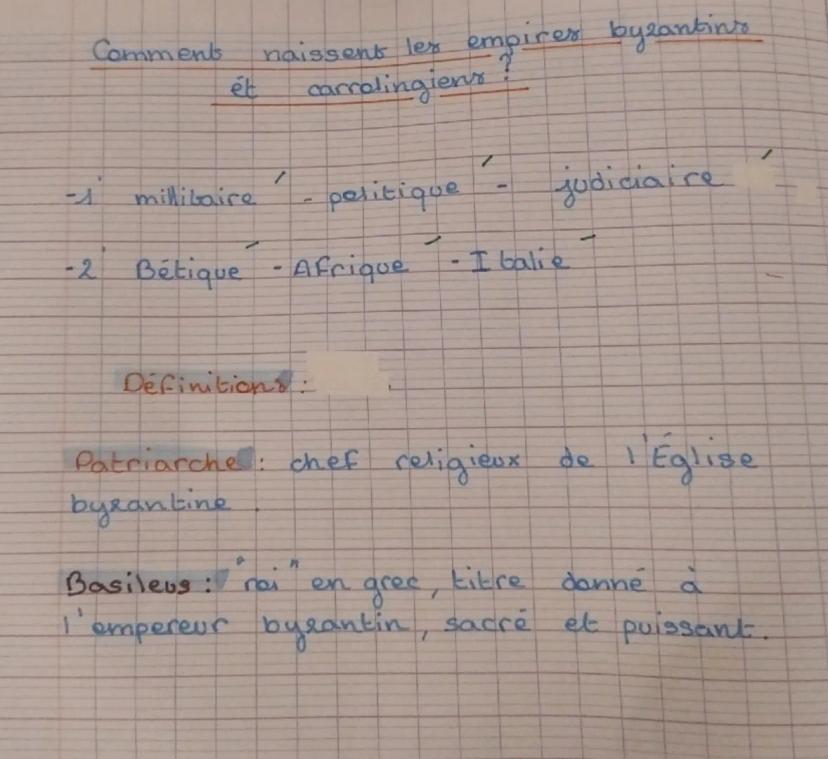 Comments naissents les empires byzantins
ét carrolingiens ?
-1 millitaire - politique - judiciaire
-2 Bétique - Afrique - Italie
Définitions :
Patriarche : chef religieux de l'Église
byzantine.
Basileus : "roi" en grec, titre donné à
l'empereur byzantin, sacré et puissant.